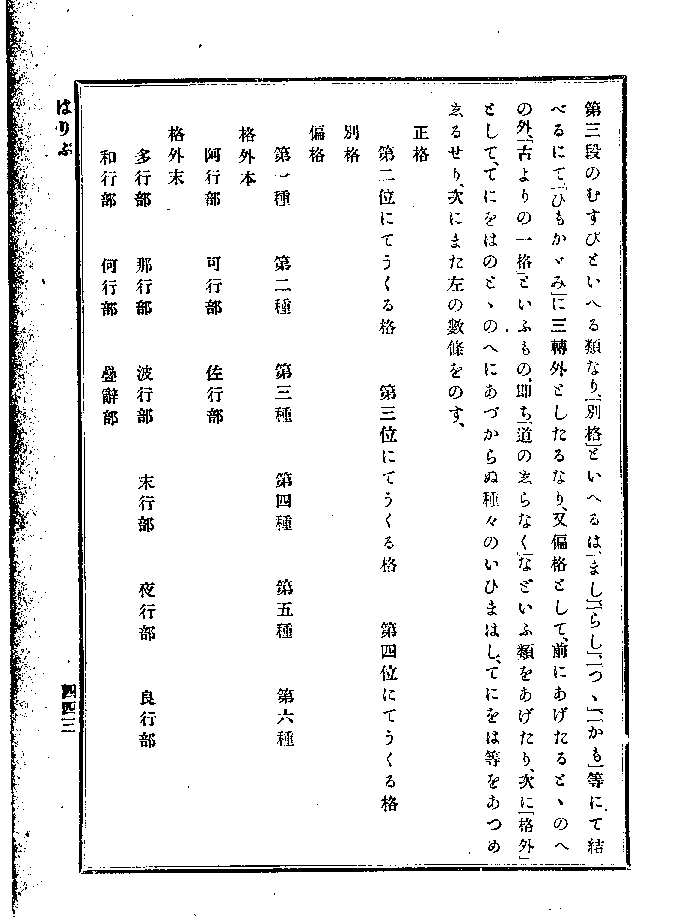 第三段のむすびといへる類なり、「別格」といへるは、「まし」「らし」「つゝ」「かも」等にて結
べるにて「ひもかゞみ」に三轉外としたるなり、又偏格として、前にあげたるとゝのへ
の外、「古よりの一格」といふもの、即ち「道のゑらなく」などいふ類をあげたり、次に「格外」
として、てにをはのとゝのへにあづからぬ種々のいひまはし、てにをは等をあつめ
ゑるせり、次にまた左の數條をのす、
正格
第二位にてうくる格　第三位にてうくる格　第四位にてうくる格
別格
偏格
第一種　第二種　第三種　第四種　第五種　第六種
格外本
阿行部　可行部　佐行部
格外末
多行部　那行部　波行部　末行部　夜行部　良行部
和行部　何行部　疊辭部
はりぶ
四四三